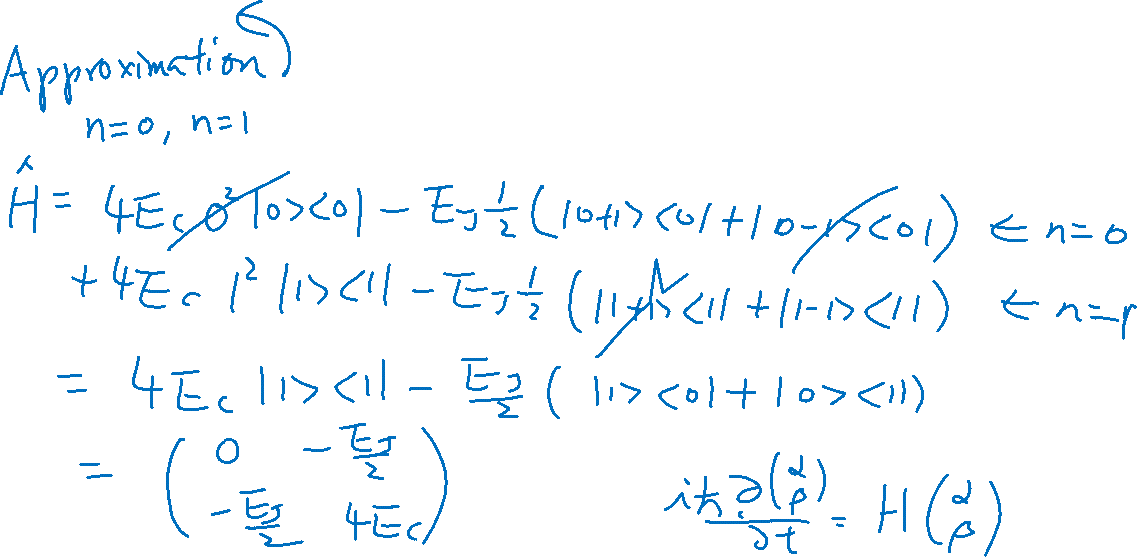 Approximation
n=0, n=1
Ĥ = 4E_c 0² |0><0| - E_J 1/2 (|0+1><0| + |0-1><0|) ← n=0
+ 4E_c 1² |1><1| - E_J 1/2 (|1+1><1| + |1-1><1|) ← n=1
= 4E_c |1><1| - E_J/2 ( |1><0| + |0><1|)
= ( 0 -E_J/2
-E_J/2 4E_c )
iħ ∂(α β)/∂t = H (α β)